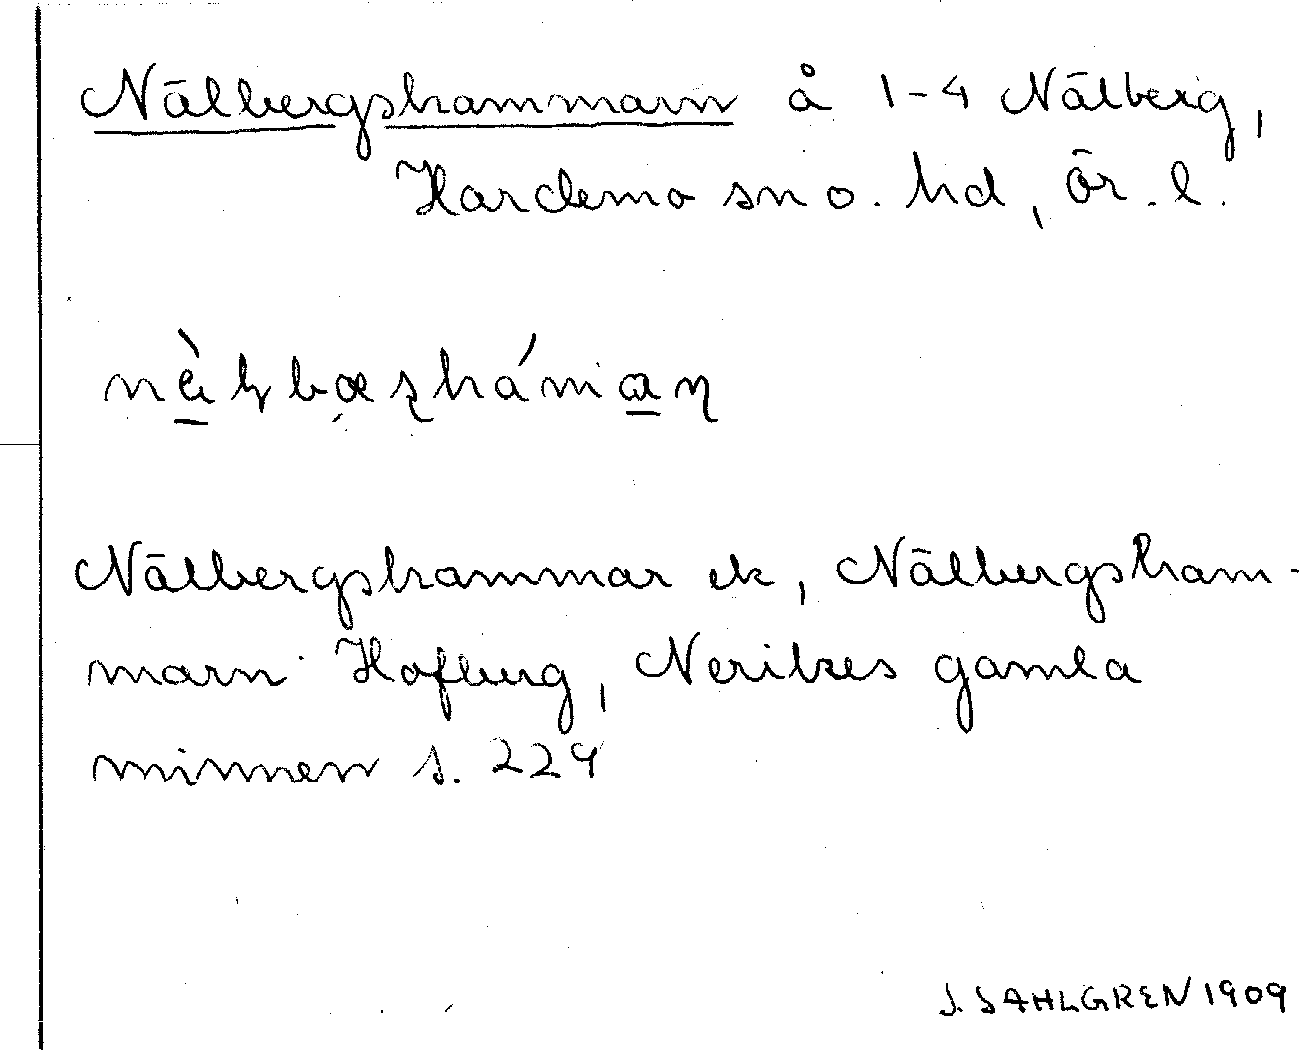 Nälbergshammarn å 1-4 Nälberg,
Hardemo sn o. hd, ör. l.
Nälbergshammar ek, Nälbergsham-
marn Hofberg, Nerikes gamla
minnen s. 224
J. SAHLGREN 1909